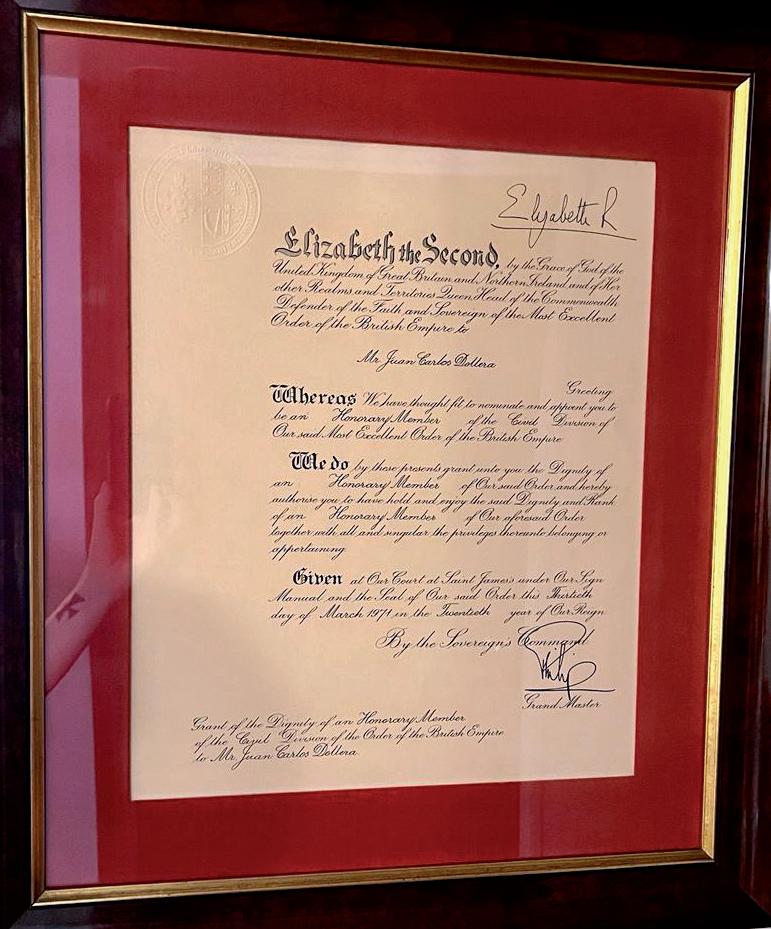 Elizabeth R
Elizabeth the Second, by the Grace of God of the
United Kingdom of Great Britain and Northern Ireland and of Her
other Realms and Territories Queen, Head of the Commonwealth
Defender of the Faith and Sovereign of the Most Excellent
Order of the British Empire to
Mr Juan Carlos Dollera
Greeting
Whereas We have thought fit to nominate and appoint you to
be an Honorary Member of the Civil Division of
Our said Most Excellent Order of the British Empire
We do by these presents grant unto you the Dignity of
an Honorary Member of Our said Order and hereby
authorise you to have hold and enjoy the said Dignity and Rank
of an Honorary Member of Our aforesaid Order
together with all and singular the privileges thereunto belonging or
appertaining.
Given at Our Court at Saint James's under Our Sign
Manual and the Seal of Our said Order this Thirtieth
day of March 1971 in the Twentieth year of Our Reign
By the Sovereign's Command
Philip
Grand Master
Grant of the Dignity of an Honorary Member
of the Civil Division of the Order of the British Empire
to Mr Juan Carlos Dollera.